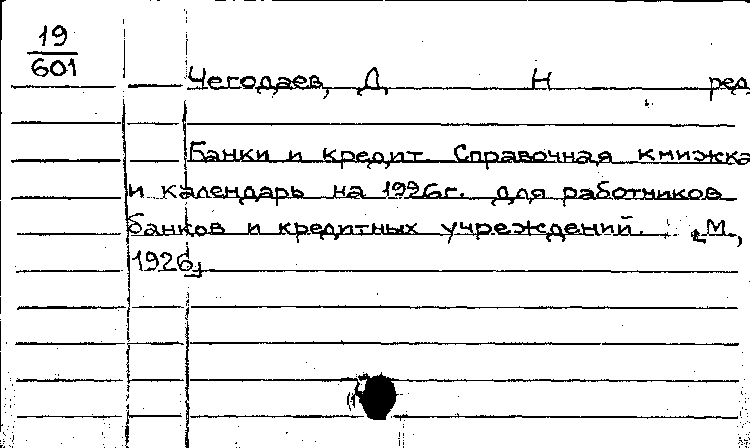 19
601
Чегодаев, Д. Н ред
Банки и кредит. Справочная книжка
и календарь на 1926г. для работников
банков и кредитных учреждений. [М.,
1926]